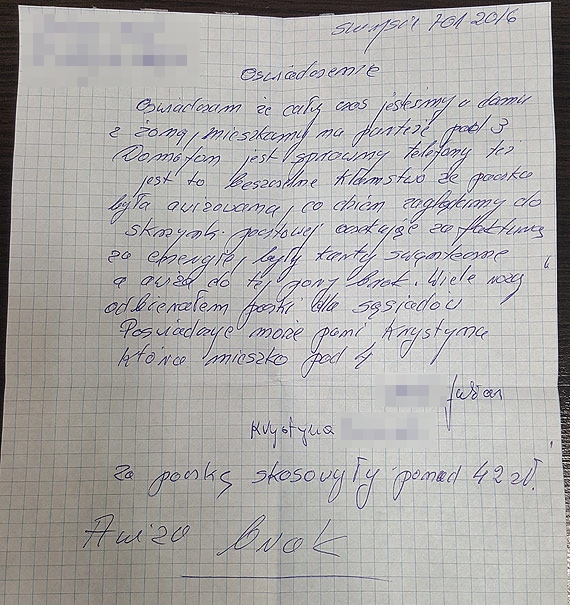 7 01 2016
Oswiadczenie
Oswiadczam ze cały czas jesteśmy w domu
z żoną, mieszkamy na parterze pod 3
Domofon jest sprawny telefony też
jest to bezczelne kłamstwo że paczka
była awizowana, co dzien zaglądamy do
skrzynki pocztowej czekając za fakturą
za energię, były kartki swąnteczne
a awiza do tej pory brak. Wiele razy
odbierałem paczki dla sąsiadów
Poświadczyć może pani Krystyna
która mieszka pod 4
Julian
Krystyna
za paczkę skasowały ponad 42 zł.
Awizo brak